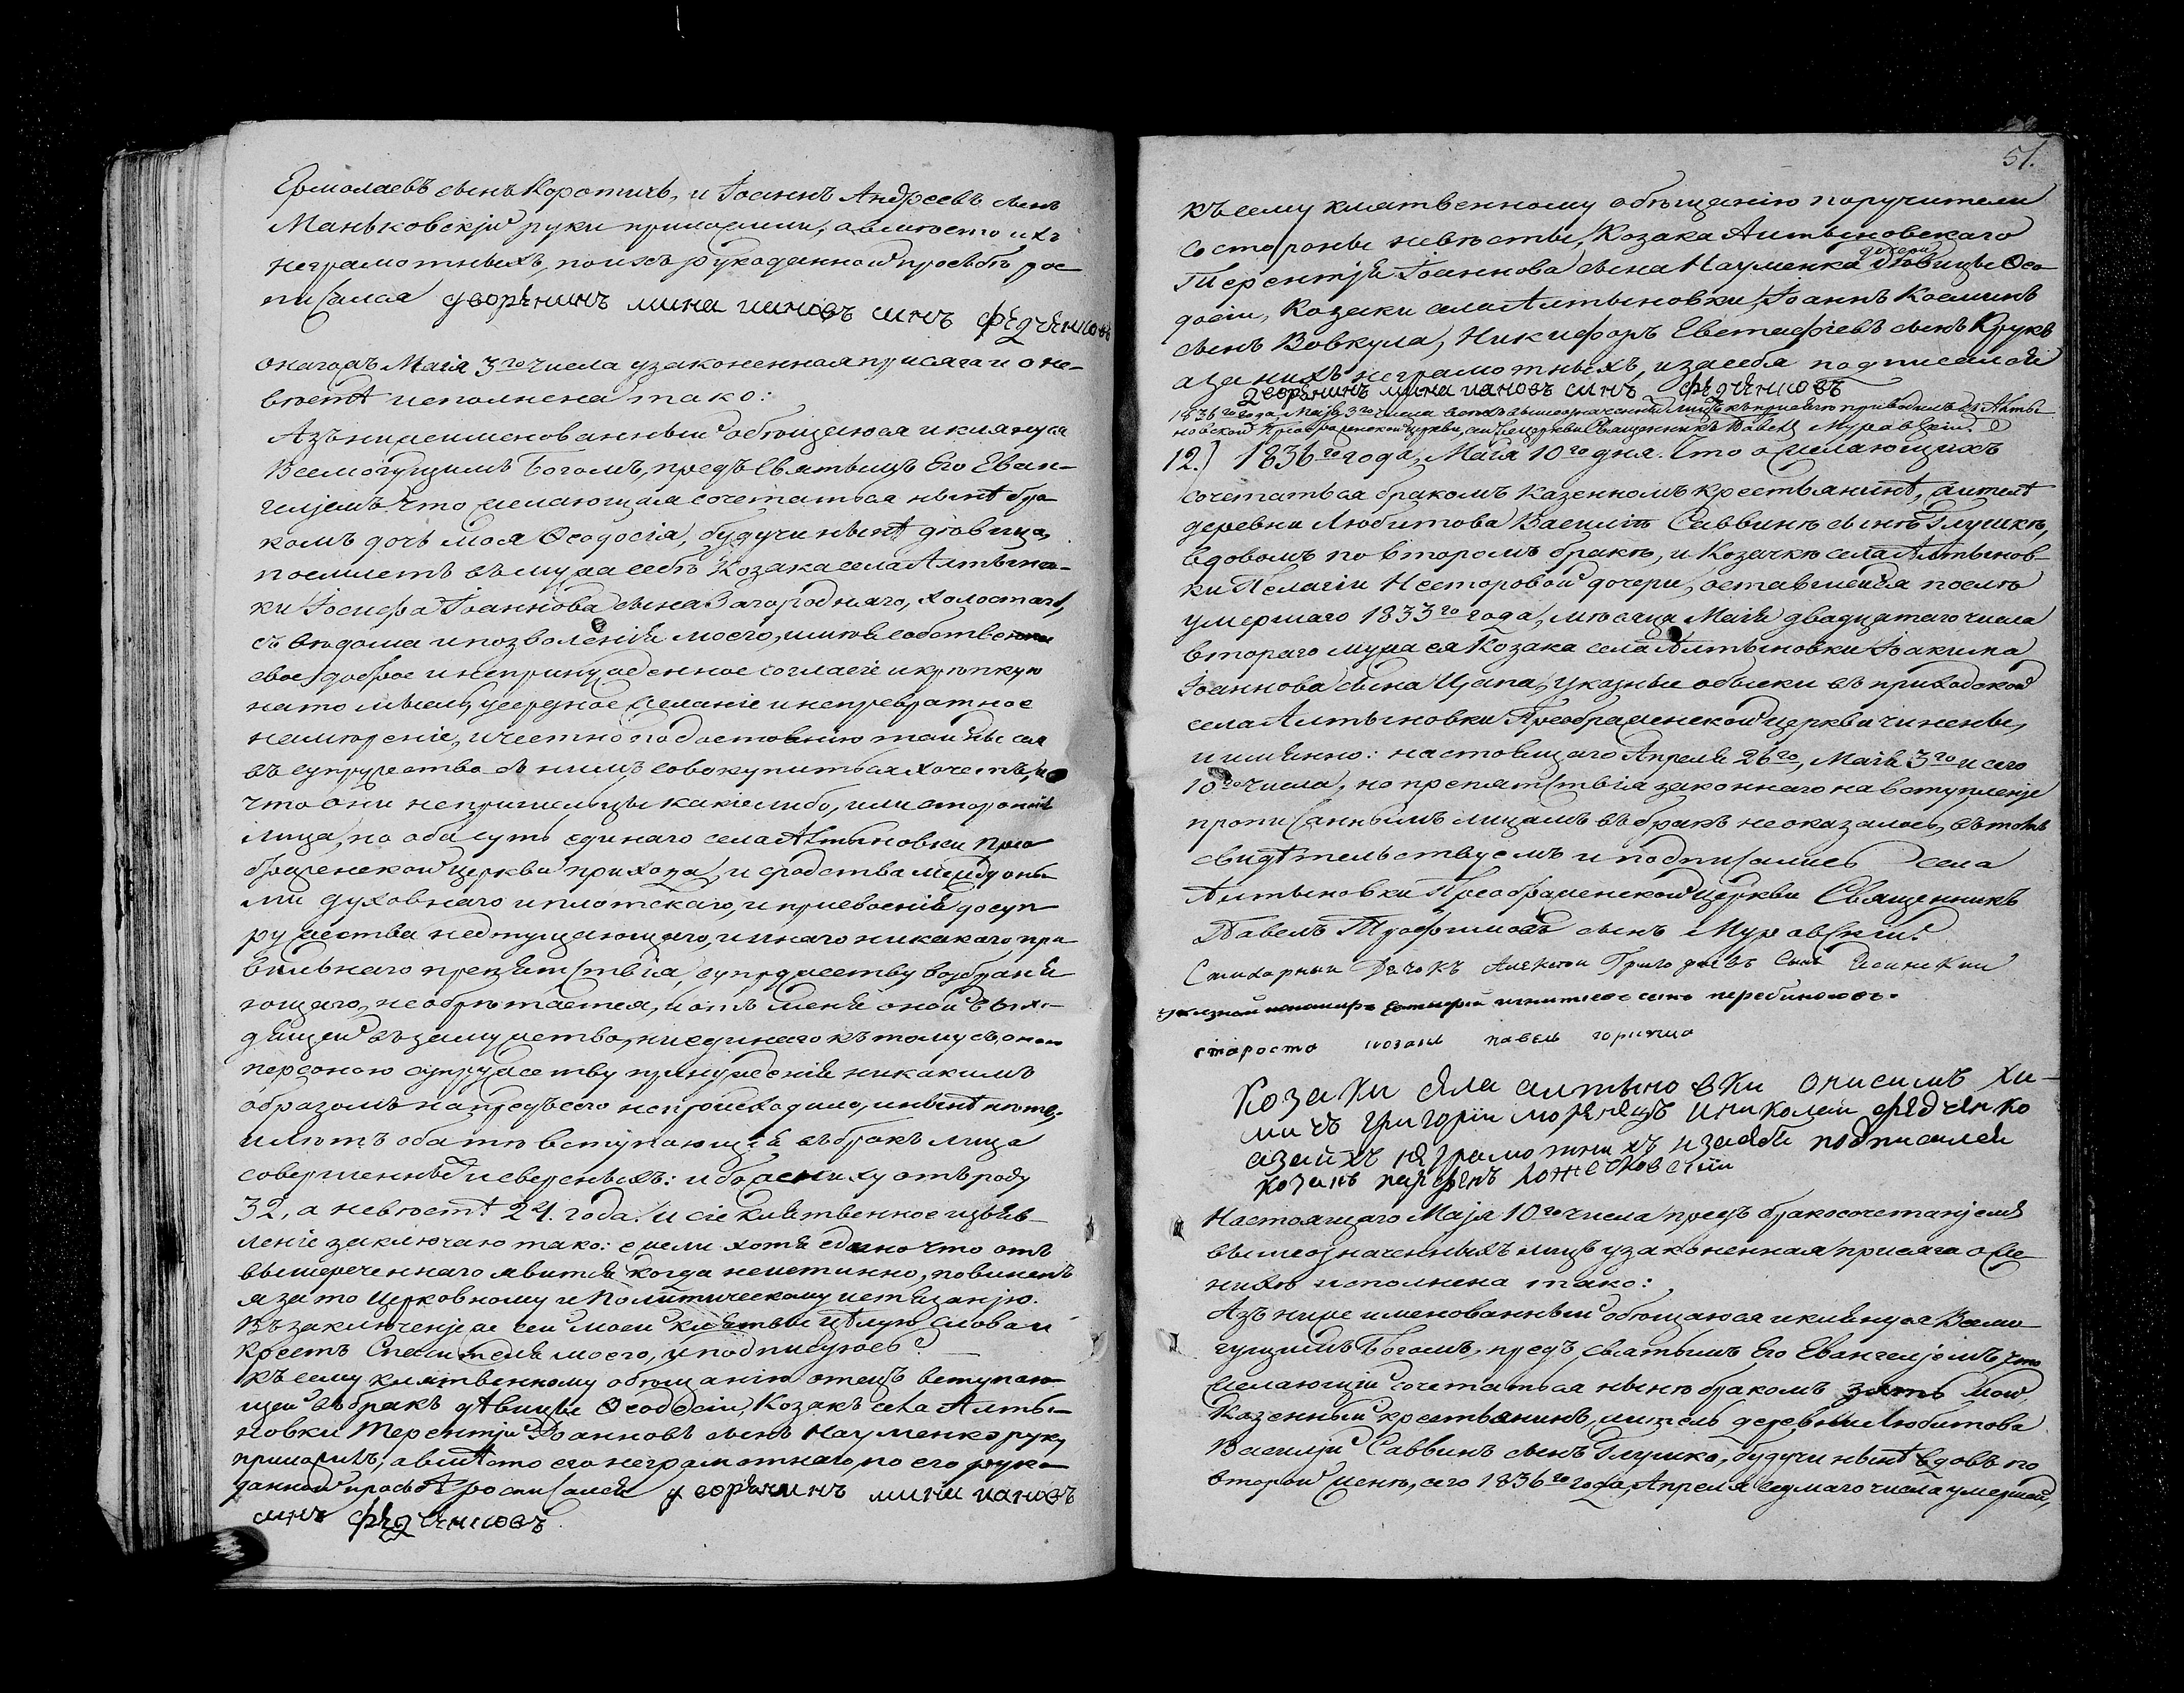 Ермолаевъ сынъ Коротичъ, и Іоаннъ Андреевъ сынъ
Маньковскій руки приложили, а вмѣсто ихъ
неграмотныхъ, по ихъ рукоданной прозьбѣ рос-
писался дворѣнинъ мина ивновъ синъ федченковъ
онагожъ Маія 3го числа узаконенная присяга и о не-
вѣстѣ исполнена тако:
Азъ нижеименованный обѣщаюся и клянуся
Всемогущимъ Богомъ, предъ Святымъ Его Еван-
геліемъ что желающая сочетаться нынѣ бра-
комъ дочь моя Ѳеодосія, будучи нынѣ дѣвица,
посилетъ въ мужа себѣ Козака села Алтынов-
ки Іосифа Іоаннова сына Загороднаго, холостаго,
съ вѣдома и позволенія моего, имѣя собственное
свое доброе и непринужденное согласіе и крѣпкую
на то мысль, усердное желаніе и непревратное
намѣреніе, и честно по достоянію тайны сея
въ супружество съ нимъ совокупиться хочетъ, и
что они не пришельцы какіе либо, или сторонніи
лица, но оба суть единаго села Алтыновки Прео-
браженской церкви прихода, и сродства межъ до ны-
ми духовнаго и плотскаго, и присвоенія до суп-
ружества недопущающаго, и инаго никакаго пра-
вильнаго препятствія, супружеству возбраня-
ющаго, не обрѣтается, и отъ меня оной въ вхо-
дящей въ замужство, ни единаго къ тому съ оною
персоною супружеству принужденія никакимъ
образомъ напредъ сего не происходило, и нынѣ нѣтъ,
и лѣтъ оба тѣ вступающія въ бракъ лица
совершенныя и сверсныхъ: ибо жениху отъ роду
32, а невѣстѣ 24. года. И сіе клятвенное изъяв-
леніе заключаю тако: ежели хотя едино что отъ
вышереченнаго явится когда неистинно, повиненъ
я за то Церковному и Политическому истязанію.
Въ заключеніе же сей моей клятвы цѣлую слова и
крестъ Спасителя моего, и подписуюсь.
Къ сему клятвенному обѣщанію отецъ вступаю-
щей въ бракъ дѣвицы Ѳеодосіи, Козакъ села Алты-
новки Терентій Іоанновъ сынъ Науменко руку
приложилъ, а вмѣсто его неграмотнаго, по его руко-
данной прозьбѣ росписался дворѣнинъ мина ивановъ
синъ федченковъ.
51.
къ сему клятвенному обѣщанію поручители
со стороны невѣсты, Козака Алтыновскаго
Терентія Іоаннова сына Науменка дочери дѣвицы Ѳео-
досіи, Козаки села Алтыновки, Іоаннъ Косминъ
сынъ Вовкула, Никифоръ Евстафіевъ сынъ Крукъ
а за нихъ неграмотныхъ, и за себя подписался
дворѣнинъ мина ивановъ синъ федченковъ
1836го года, Маія 3го числа всѣхъ вышеозначенныхъ лицъ къ присягѣ приводилъ села Алты-
новской Преображенской церкви, сей церкви Священникъ Павелъ Муравскій.
12.) 1836го года, Маія 10го дня. Что о желающихъ
сочетаться бракомъ казенномъ крестьянинѣ, жителѣ
деревни Любитова Василіѣ Саввинѣ сынѣ Глушкѣ,
вдовомъ по второмъ бракѣ, и Козачкѣ села Алтынов-
ки Пелагіи Несторовой дочери, оставшейся послѣ
умершаго 1833го года, мѣсяца Маія двадцатаго числа
втораго мужа ея Козака села Алтыновки Іоакима
Іоаннова сына Цапа, указные обыски въ приходской
села Алтыновки Преображенской церкви чинены,
и имянно: настоящаго Апрѣля 26го, Маія 3го и сего
10го числа, но препятствія законнаго на вступленіе
прописаннымъ лицамъ въ бракъ не оказалось, въ томъ
свидѣтельствуемъ и подписались села
Алтыновки Преображенской церкви Священникъ
Павелъ Трофимовъ сынъ Муравскій.
Стихарный Дьячокъ Алексѣй Григорьевъ сынъ
староста козакъ павелъ горитко
Козаки села алтыновки онисимъ хи-
мичъ григорій моренецъ и николай федченко
а за ихъ неграмотнихъ и за себя подписался
козакъ парфенъ ложечковскій
Настоящаго Маія 10го числа предъ бракосочетаніемъ
вышеозначенныхъ лицъ узаконенная присяга о же-
нихѣ исполнена тако:
Азъ ниже именованный обѣщаюся и клянуся Всемо-
гущимъ Богомъ, предъ святымъ Его Евангеліемъ что
желающій сочетаться нынѣ бракомъ зять мой,
Казенный крестьянинъ, житель деревни Любитова
Василій Саввинъ сынъ Глушко, будучи нынѣ вдовъ по
второй женѣ, сего 1836го года, Апрѣля седмаго числа умершей,